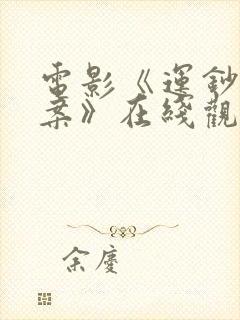 電影《運鈔
案》在綫觀
余慶